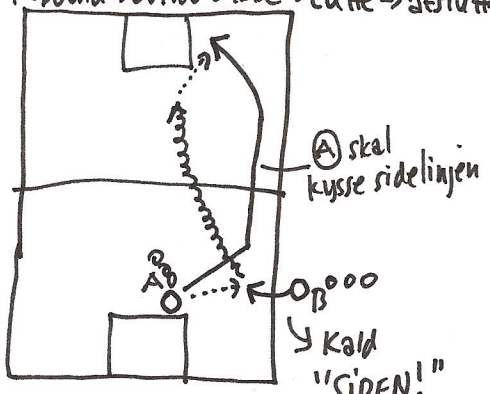 A skal
kysse sidelinjen
A
B
Kald
"SIDEN!"